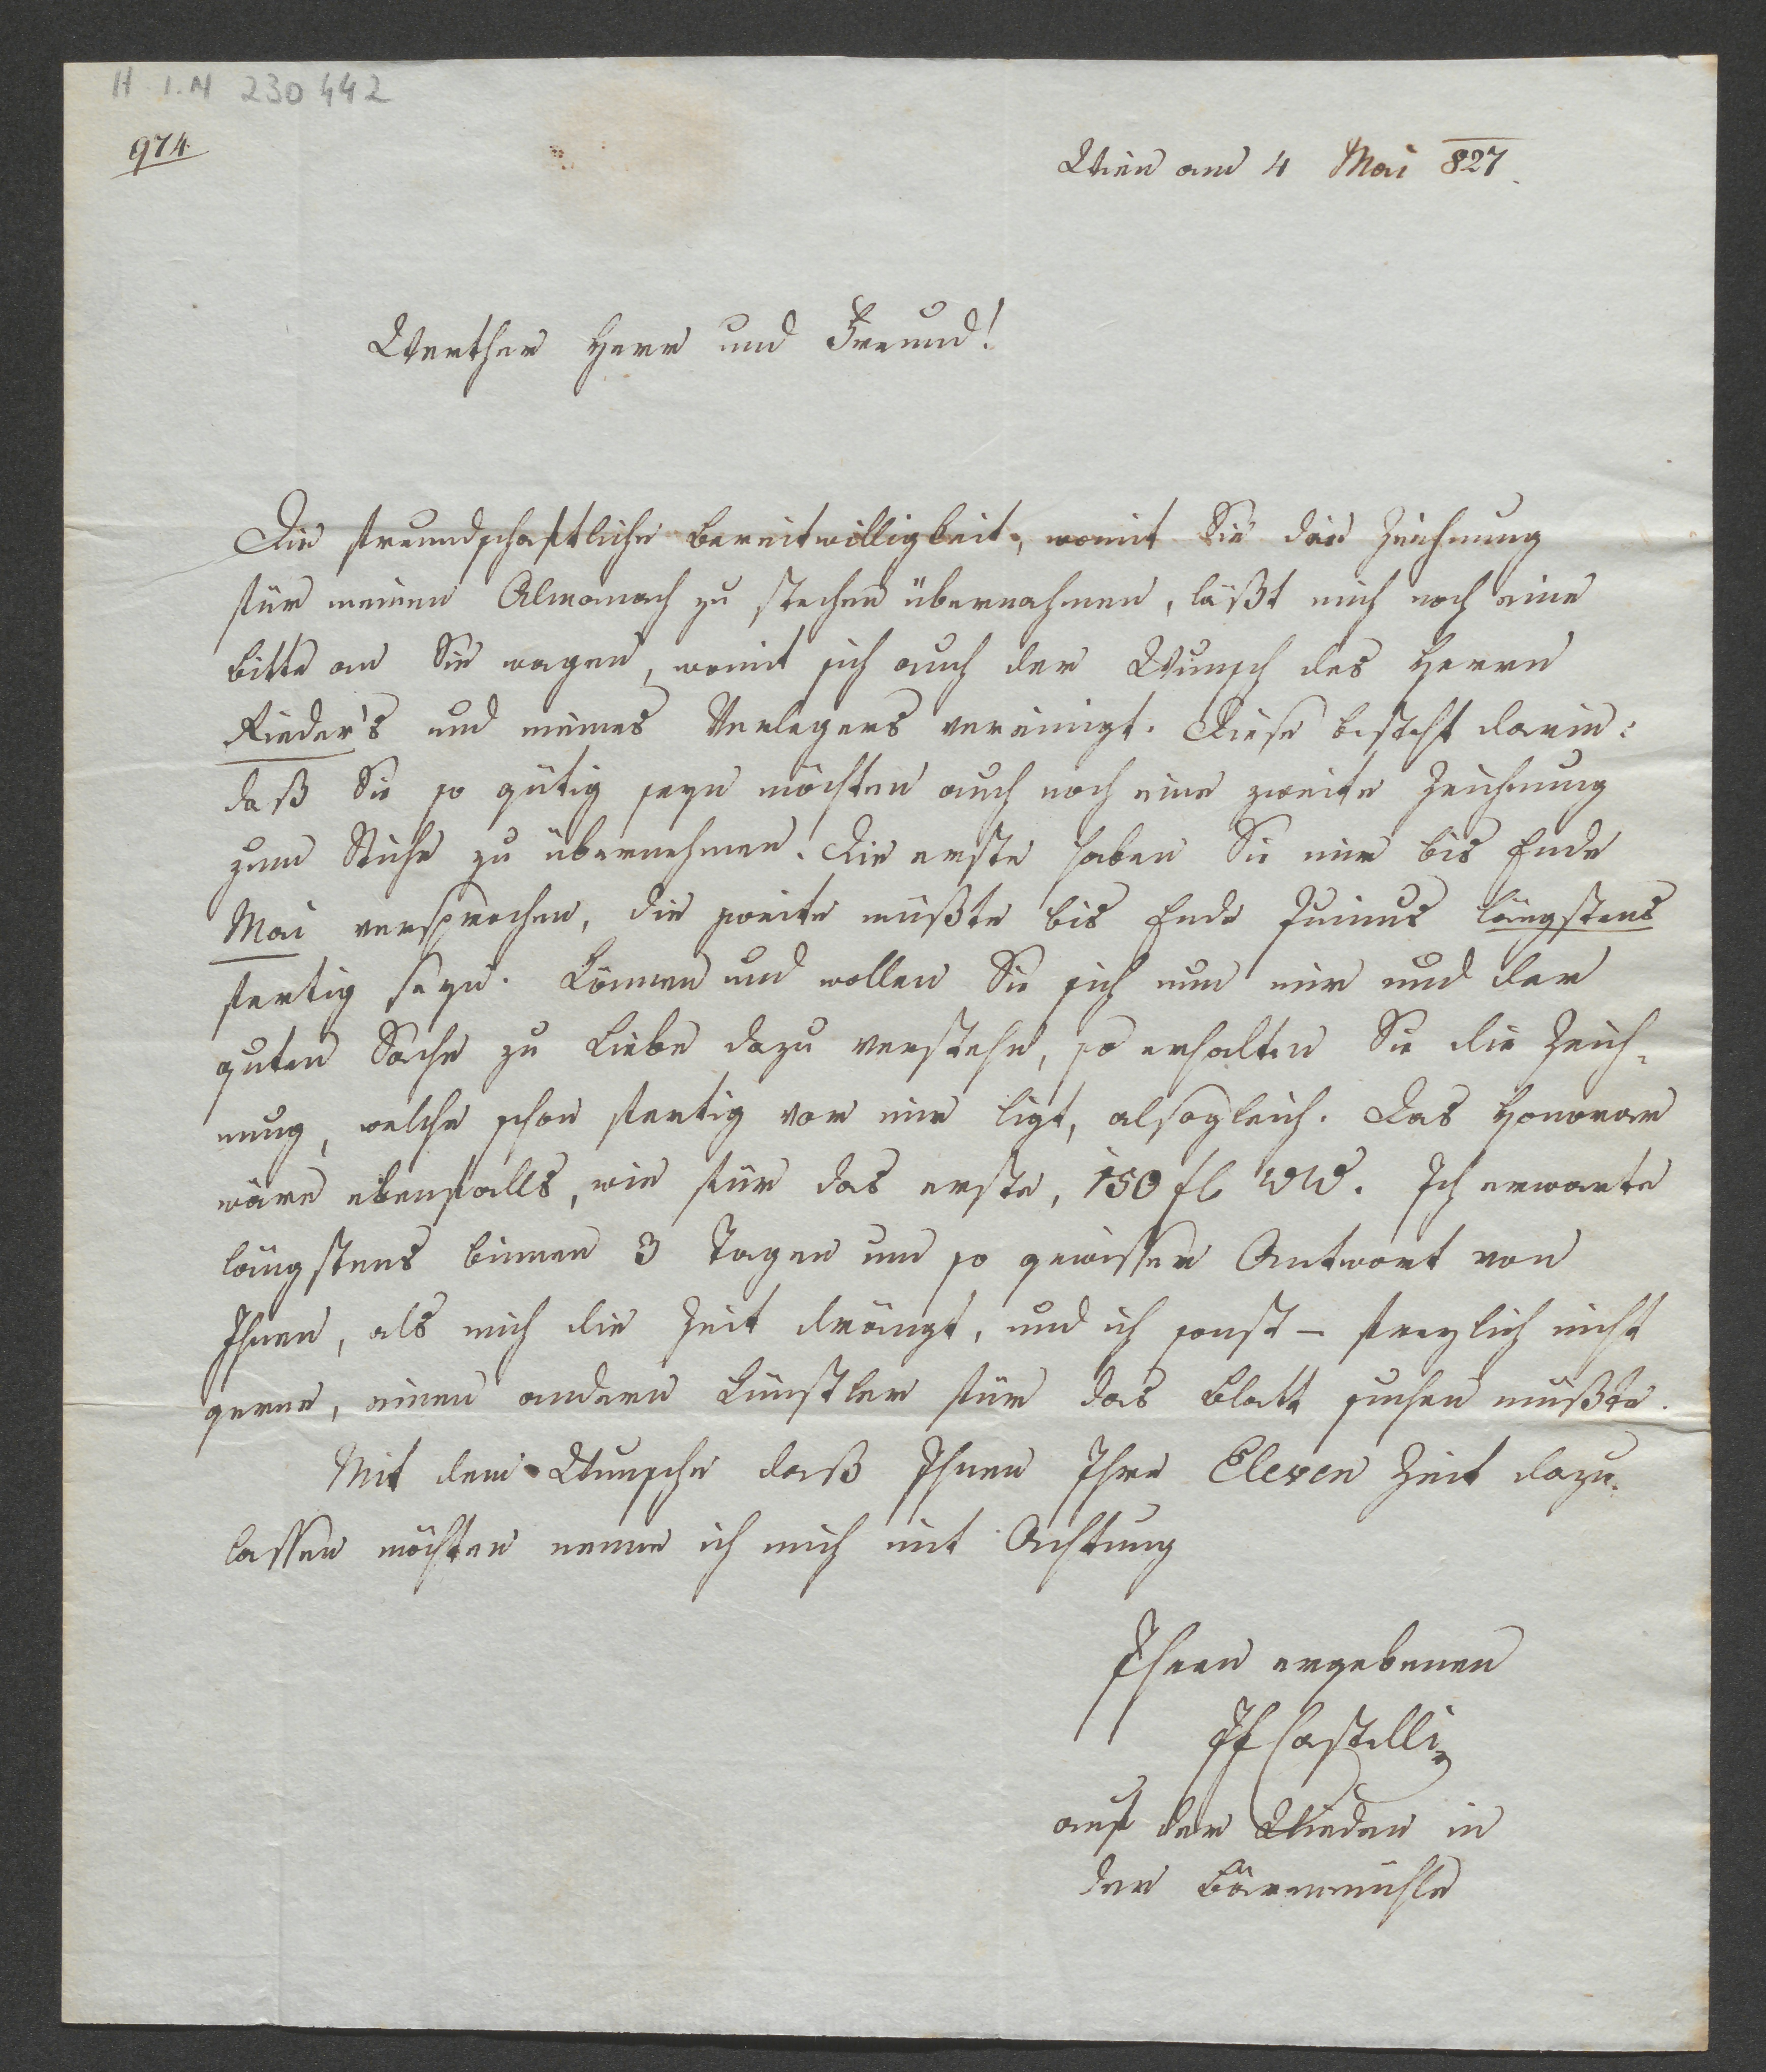 H.I.N 230442
974.
Wien am 4 Mai 827.
Werther Herr und Freund!
Die freundschaftliche Bereitwilligkeit, womit Sie die Zeichnung
für meinen Almanach zu stechen übernahmen, läßt mich noch eine
Bitte an Sie wagen, womit sich auch der Wunsch des Herrn
Rieder's und meines Verlegers vereinigt. Diese besteht darin:
daß Sie so gütig seyn möchten auch noch eine zweite Zeichnung
zum Stiche zu übernehmen. Die erste haben Sie mir bis Ende
Mai versprochen, die zweite müßte bis Ende Junius längstens
fertig seyn. Können und wollen Sie sich nun mir und der
guten Sache zu Liebe dazu verstehe, so erhalten Sie die Zeich-
nung, welche schon fertig vor mir ligt, alsogleich. Das Honorar
wäre ebenfalls, wie für das erste, 150 fl WW. Ich erwarte
längstens binnen 3 Tagen um so gewisser Antwort von
Ihnen, als mich die Zeit drängt, und ich sonst – freylich nicht
gerne, einen andern Künstler für das Blatt suchen müßte.
Mit dem Wunsche daß Ihnen Ihre Eleven Zeit dazu
lassen möchten nenne ich mich mit Achtung
Ihren ergebenen
IF Castelli
auf der Wieden in
der Bärenmühle